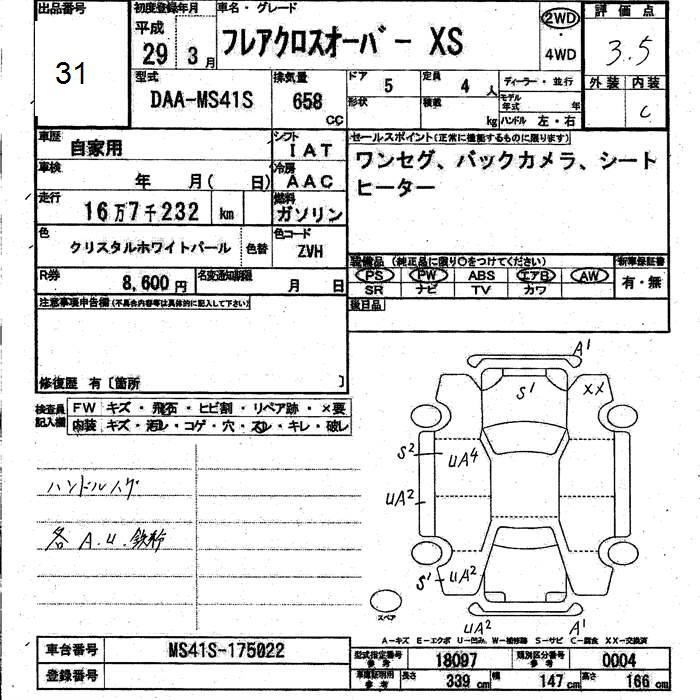 出品番号
31
初度登録年月
平成
29 3 月
車名・グレード
フレアクロスオーバー XS
2WD
・
4WD
評価点
3.5
外装 内装
C
型式
DAA-MS41S
排気量
658
CC
ドア
5
定員
4 人
形状
積載
kg
ディーラー・並行
モデル年式 年
ハンドル 左・右
車歴
自家用
シフト
IAT
車検
年 月( 日)
冷房
AAC
走行
16万7千232 km
燃料
ガソリン
色
クリスタルホワイトパール
色替
色コード
ZVH
R券
8,600円
名変通知期限
月 日
セールスポイント(正常に機能するものに限ります)
ワンセグ、バックカメラ、シート
ヒーター
装備品 (純正品に限り○をつけてください)
PS PW ABS エアB AW
SR ナビ TV カワ
新車保証書
有・無
後日品
注意事項申告欄(不具合内容等は具体的に記入して下さい)
修復歴 有〔箇所 〕
検査員記入欄
FW キズ・飛石・ヒビ割・リペア跡・×要
内装 キズ・汚レ・コゲ・穴・スレ・キレ・破レ
ハンドルスレ
各 A.U.鉄粉
A1
S1
XX
S2
UA4
UA2
S1
UA2
UA2
A1
スペア
A-キズ E-エクボ U-凹み W-補修跡 S-サビ C-腐食 XX-交換済
車台番号
MS41S-175022
登録番号
型式指定番号
参考
18097
類別区分番号
参考
0004
車庫証明用
参考
長さ 339 cm
幅 147 cm
高さ 166 cm